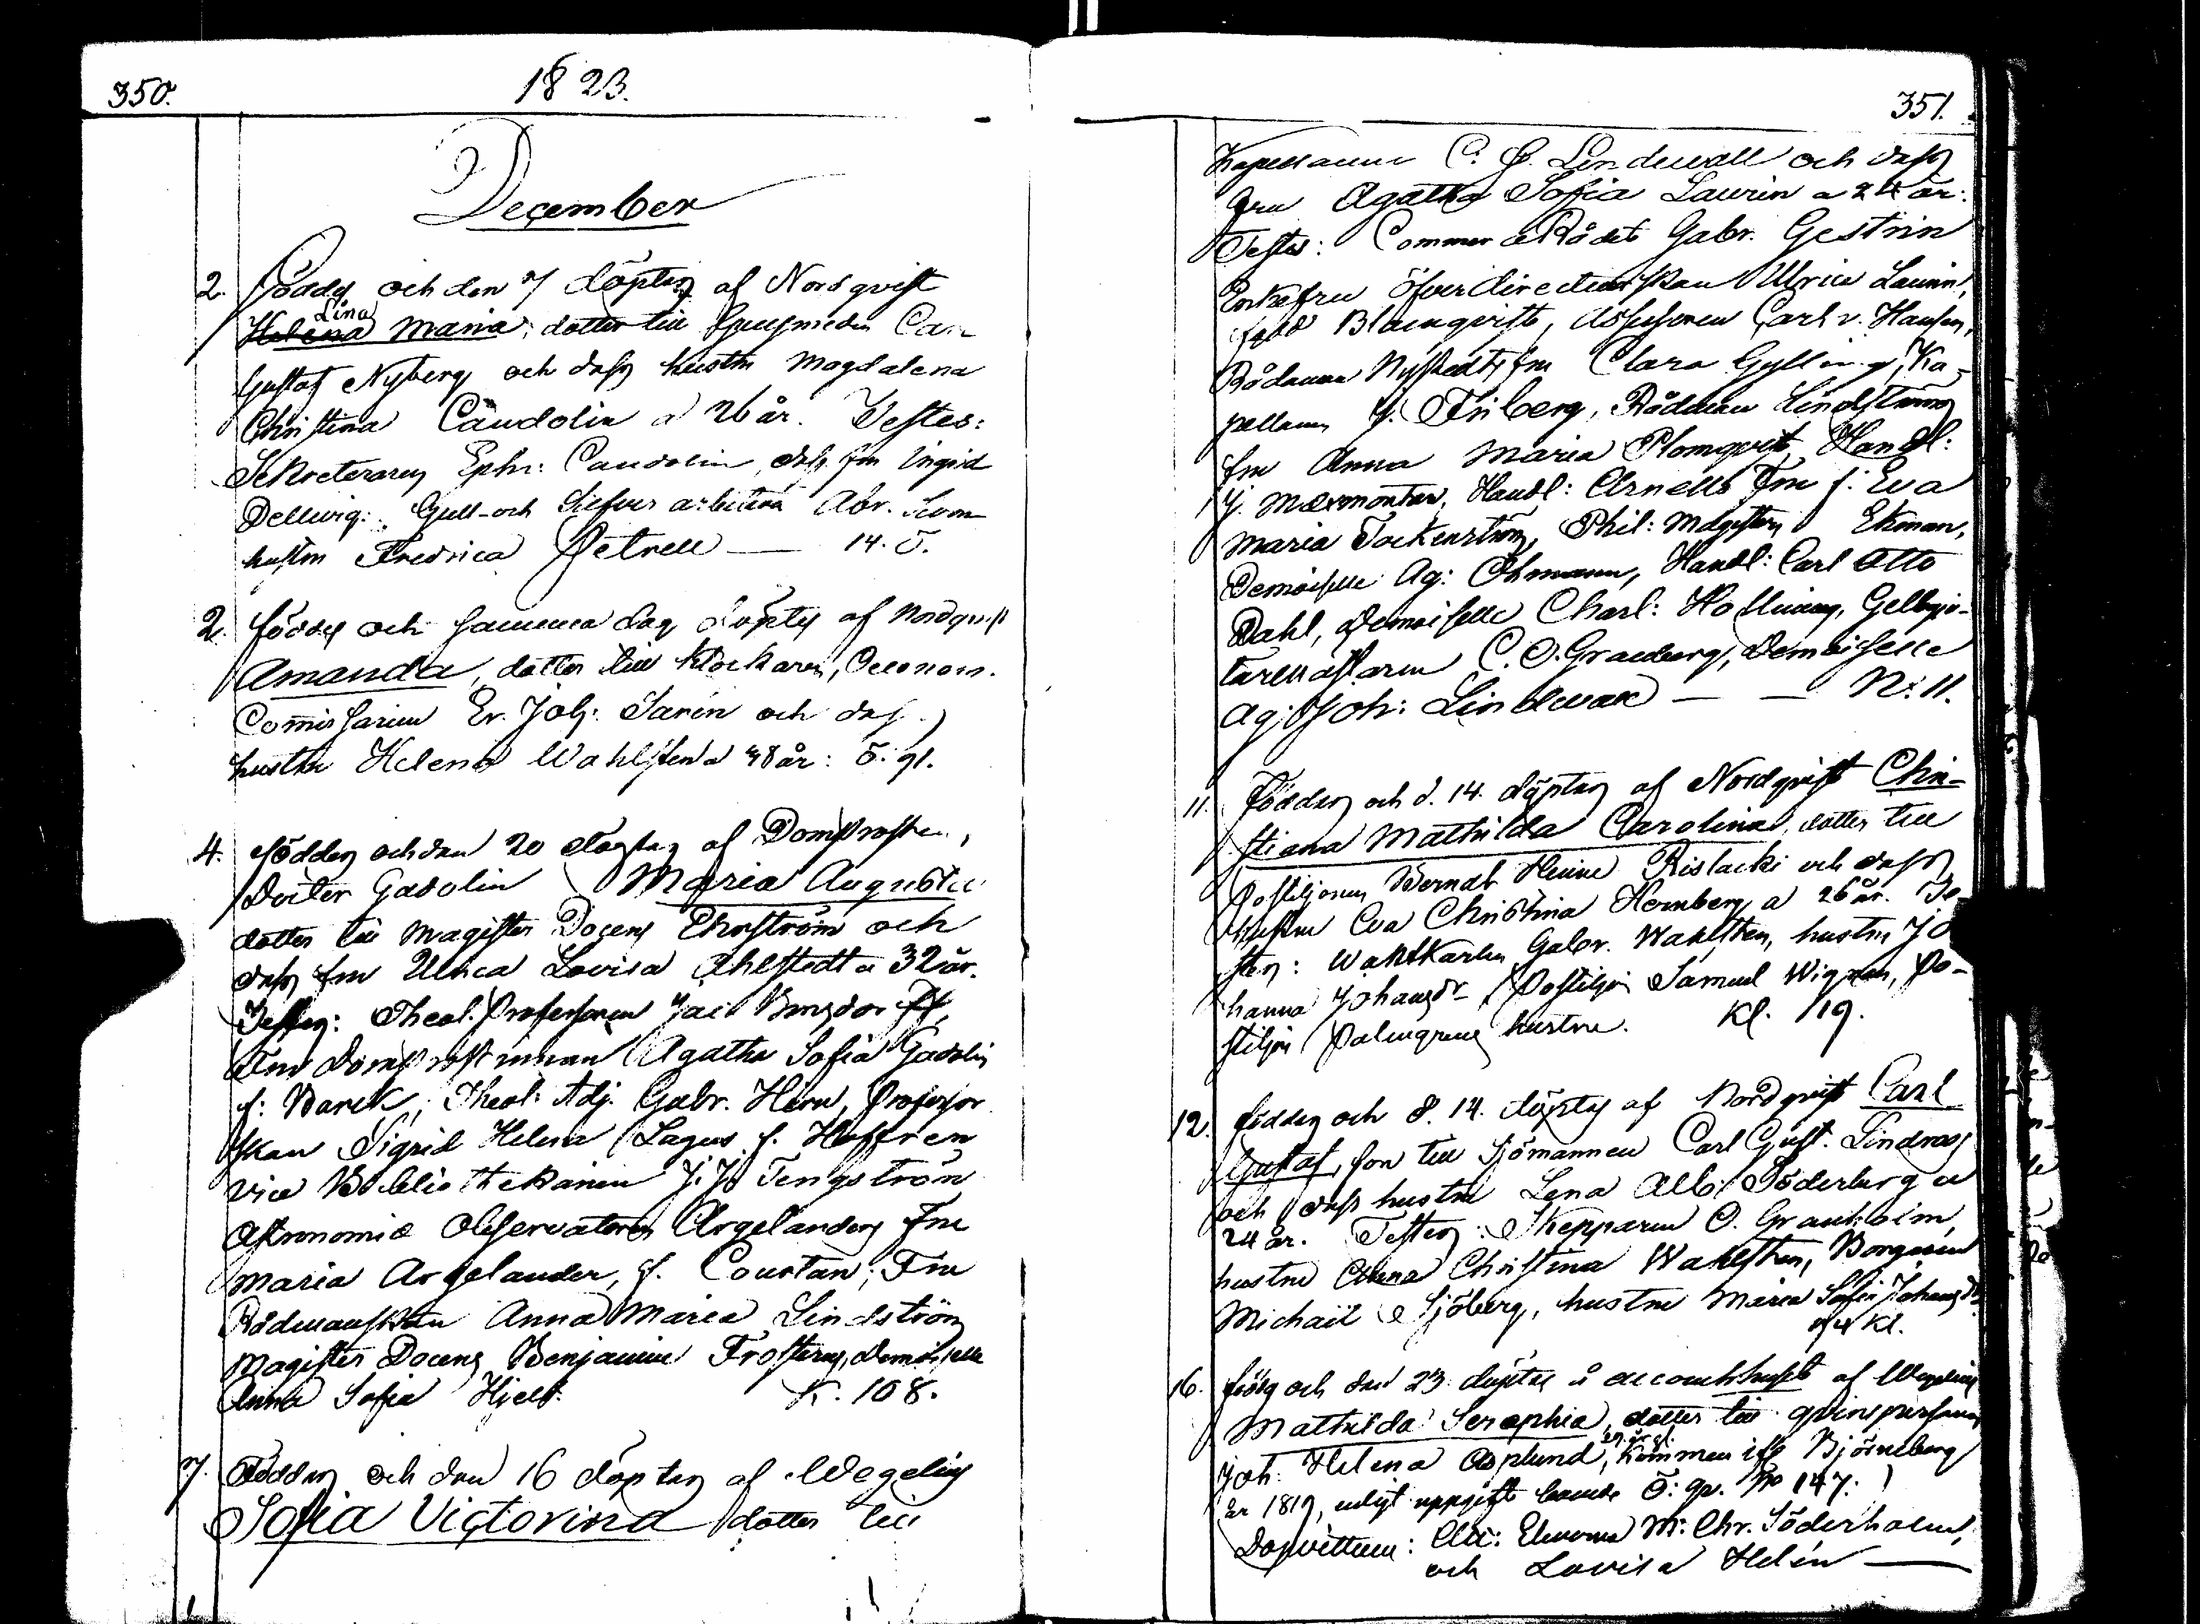 350.
1823.
December
2. Föddes och den 7 döptes af Nordqvist
Lina
Helena Maria, dotter till Carl
Gustaf Nyberg och dess hustru Magdalena
Christina Caudolin a 26 år. Testes:
Sekreteraren Ephr: Caudolin, dess fru Ingrid
Dellwig: Gull- och Silfver arbetaren Abr.
hustru Fredrica Petrell — 14. Ö.
2. föddes och samma dag döptes af Nordqvist
Amanda, dotter till klockaren, Oeconom.
Comissarien Er. Joh: Sarin och dess
hustru Helena Wahlsten a 48 år: Ö. 91.
4. Föddes och den 20 döptes af Domprosten,
Docter Gadolin Maria Augusta
dotter till Magister Docens Ehrström och
dess fru Ulrica Lovisa Ahlstedt a 32 år.
Testes: Theol. Professoren Jac Bonsdorff,
Fru Domprostinnan Agatha Sofia Gadolin
f: Barck, Theol: Adj. Gabr. Hirn, Professor
skan Sigrid Helena Lagus f. Haffren
vice Bibliothekarien J. J. Tengström
Astronomiæ Observatoren Argelanders Fru
Maria Argelander, f. Courtan; Fru
Rådmanskan Anna Maria Lindström
Magister Docens Benjamin Frosterus, Demoiselle
Anna Sofia Hjelt. K. 108.
7. Föddes och den 16 döptes af Wegelius
Sofia Victorina dotter till
351.
Kapellanen C. G. Lindewall och dess
Fru Agatha Sofia Laurin a 24 år:
Testes: Commerce Rådet Gabr. Gestrin
Enkefru Öfverdirecteurskan Ulrica Laurin,
född Blomqvist, Assessoren Carl v. Hausen,
Rådman Nystedts fru Clara Gylling, Ka-
pellanen J. Friberg, Rådman Lindströms
fru Anna Maria Plomqvist, Handl:
J. Mæxmontan, Handl: Arnells Fru f. Eva
Maria Tockenström, Phil: Magistern Ekman,
Demoiselle Ag: Ohmann, Handl: Carl Otto
Dahl, Demoiselle Charl: Hollming, Gellbgju-
taremästaren C. O. Graeberg, Demoiselle
Ag: Joh: Lindewall — — N: 11.
11. Föddes och d. 14. döptes af Nordqvist Chri-
stiana Mathilda Carolina, dotter till
Postiljonen Berndt Rislacki och dess
hustru Eva Christina Hornberg a 26 år. Te-
stes: Waktkarlen Gabr. Wahlsten, hustru Jo
hanna Johansdr, Postiljon Samuel Wigman, Po-
stiljon Palmgrens hustru. Kl. 119.
12. föddes och d. 14. döptes af Nordqvist Carl
Gustaf, son till Sjömannen Carl Gust. Lindroos
och dess hustru Lena Alb: Söderberg a
24 år. Testes: Skepparen O. Granholm,
hustru Christina Wahlsten, Borgaren
Michail Sjöberg, hustru Maria Sofia Johansdr
Kl.
16. föddes och den 23. döptes å accouchhuset af Wegelius
Mathilda Seraphia, dotter till qvinspersonen
Joh: Helena Asplund, kommen ifr Björneborg
År 1819, enligt uppgift boende Ö: qv. No 147.
Dopvittnen: M: Chr. Söderholm,
och Lovisa Helén —